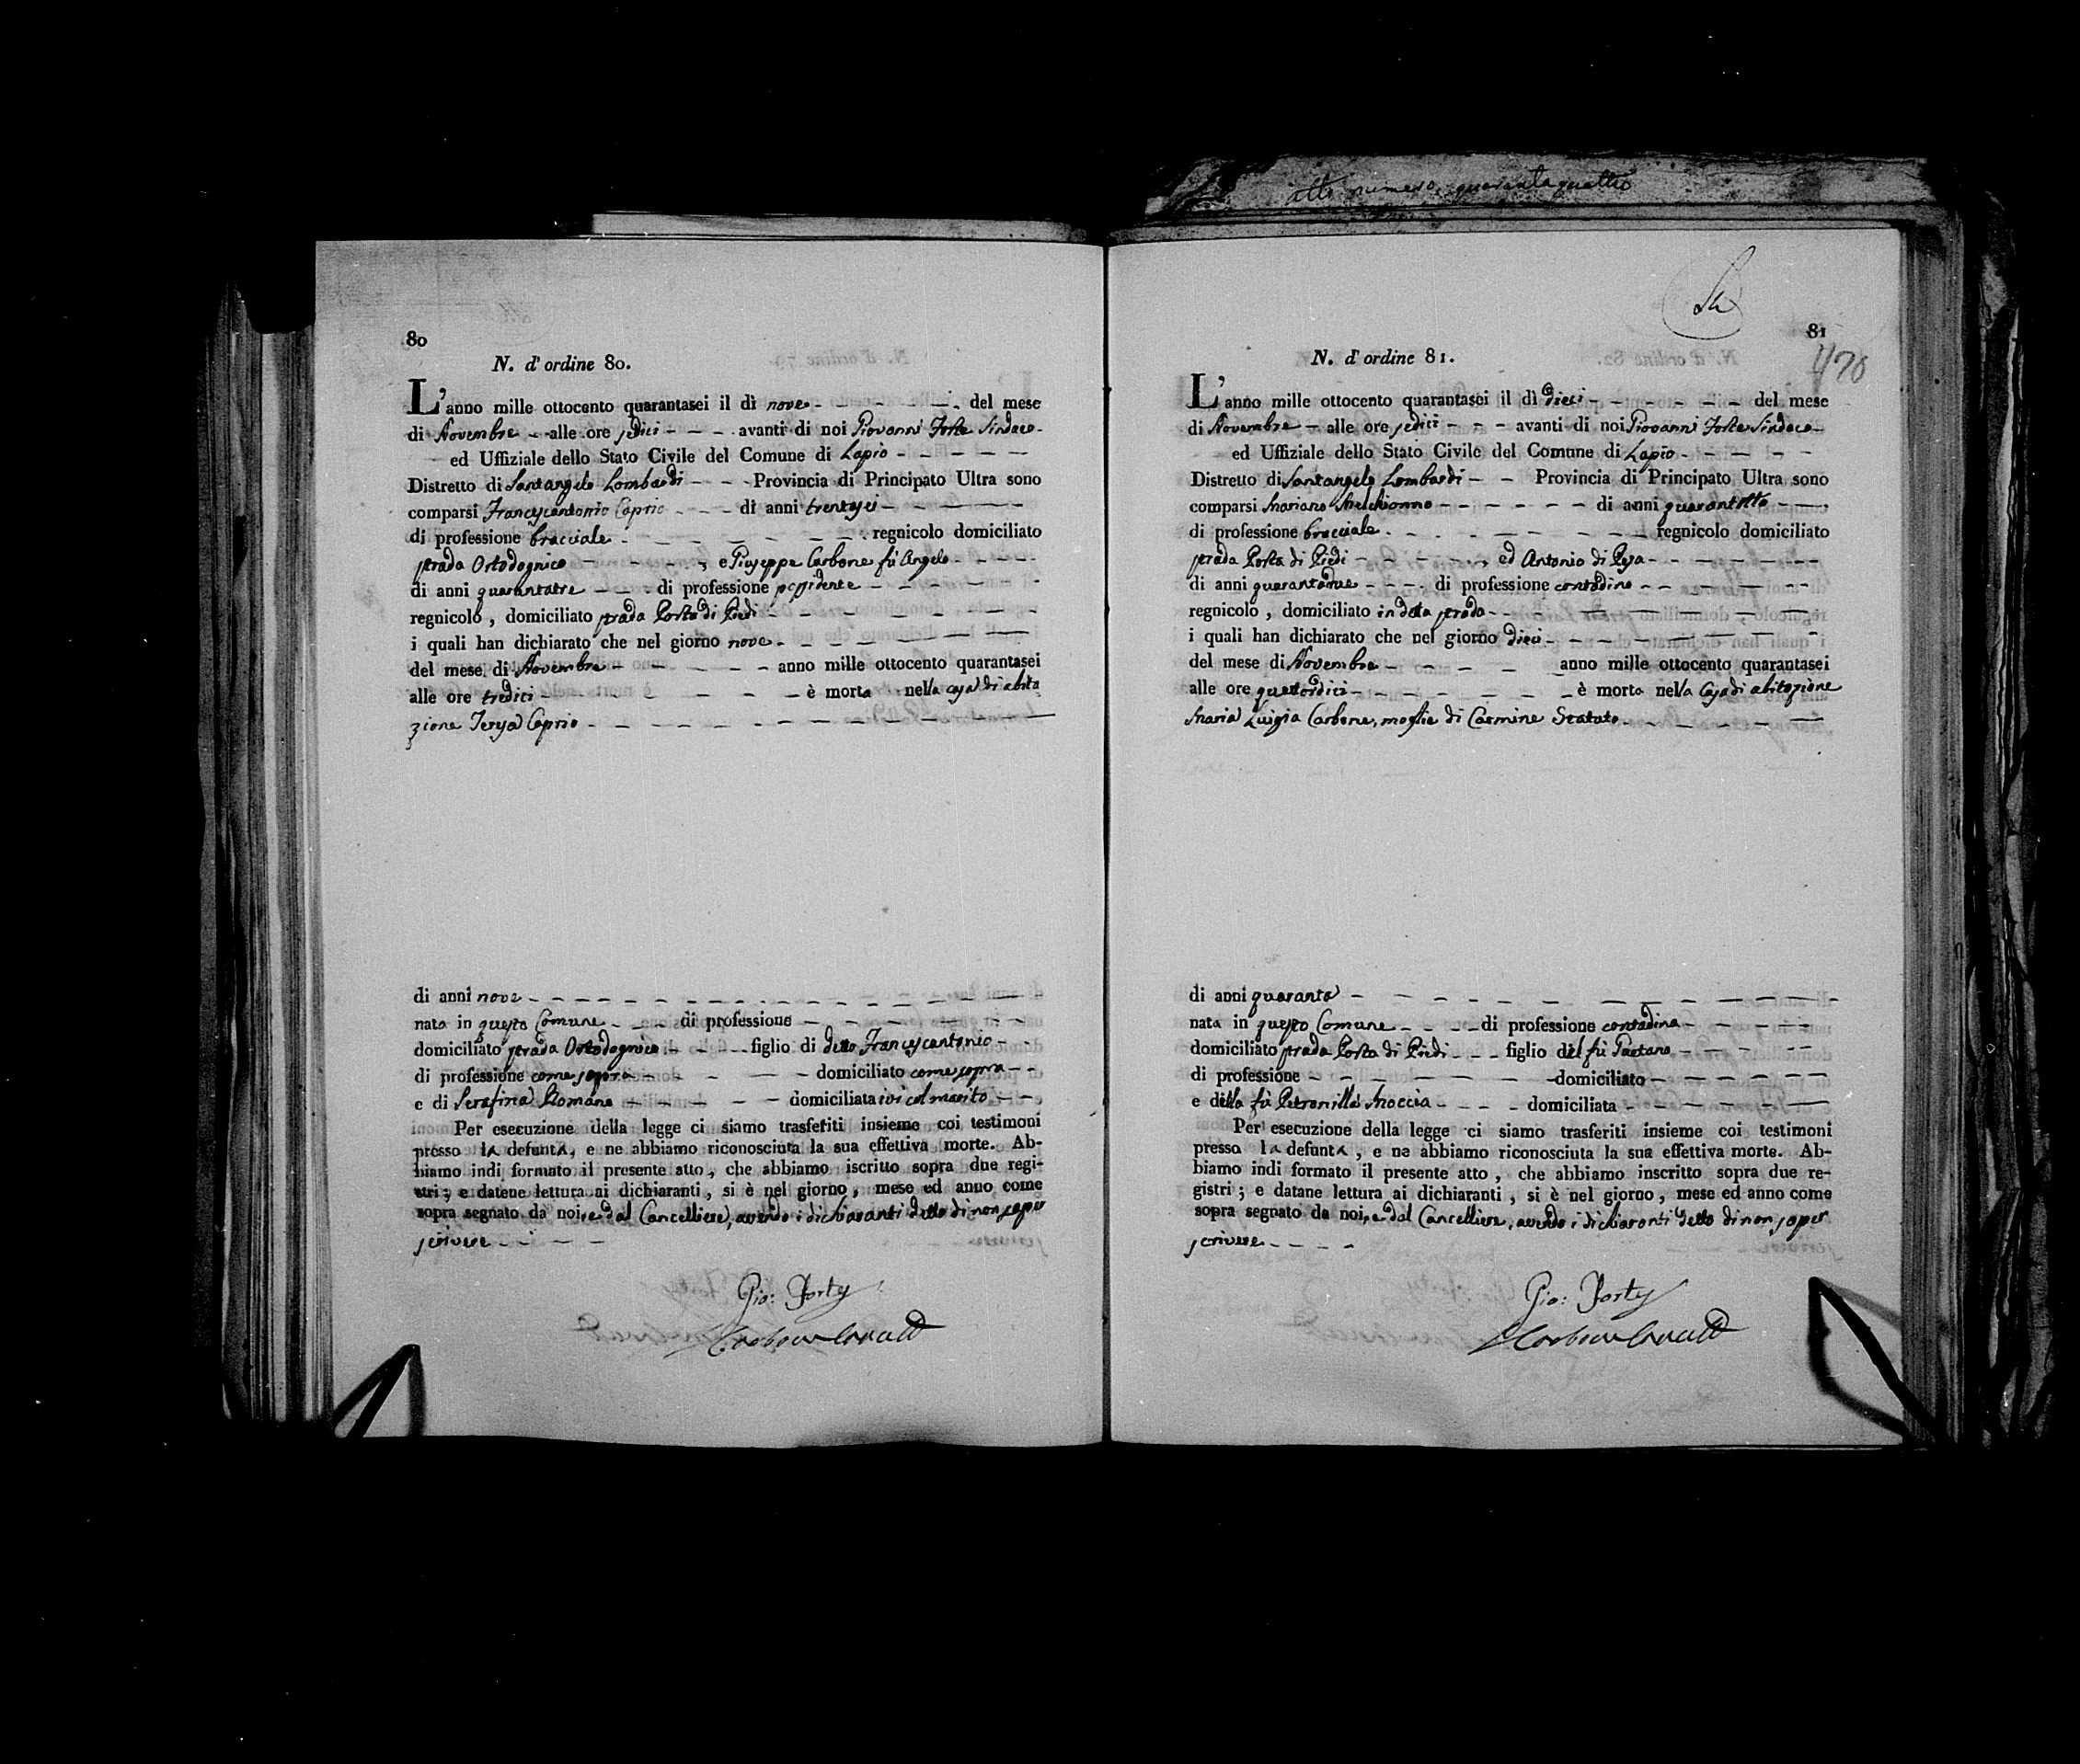 atto numero quarantaquattro
80
N. d'ordine 80.
L'anno mille ottocento quarantasei il dì nove del mese
di Novembre alle ore sedici avanti di noi Giovanni Forte Sindaco
ed Uffiziale dello Stato Civile del Comune di Lapio
Distretto di Santangelo Lombardi Provincia di Principato Ultra sono
comparsi Francescantonio Caprio di anni trentasei
di professione bracciale regnicolo domiciliato
strada Ortodognico, e Giuseppe Carbone fù Angelo
di anni quarantatre di professione possidente
regnicolo, domiciliato strada Porta di Piedi
i quali han dichiarato che nel giorno nove
del mese di Novembre anno mille ottocento quarantasei
alle ore tredici è morta nella casa di abita
zione Teresa Caprio
di anni nove
nata in questo Comune di professione
domiciliato strada Ortodognico figlio di detto Francescantonio
di professione come sopra domiciliato come sopra
e di Serafina Romano domiciliata ivi col marito
Per esecuzione della legge ci siamo trasferiti insieme coi testimoni
presso la defunta, e ne abbiamo riconosciuta la sua effettiva morte. Ab-
biamo indi formato il presente atto, che abbiamo iscritto sopra due regi-
stri; e datene lettura ai dichiaranti, si è nel giorno, mese ed anno come
sopra segnato da noi, e dal Cancelliere, avendo i dichiaranti detto di non saper
scrivere
Gio: Forte
81
470
N. d'ordine 81.
L'anno mille ottocento quarantasei il dì dieci del mese
di Novembre alle ore sedici avanti di noi Giovanni Forte Sindaco
ed Uffiziale dello Stato Civile del Comune di Lapio
Distretto di Santangelo Lombardi Provincia di Principato Ultra sono
comparsi Mariano Melchionno di anni quarantotto
di professione bracciale regnicolo domiciliato
strada Porta di Piedi, ed Antonio di Resa
di anni quarantadue di professione contadino
regnicolo, domiciliato in detta strada
i quali han dichiarato che nel giorno dieci
del mese di Novembre anno mille ottocento quarantasei
alle ore quattordici è morta nella Casa di abitazione
Maria Luigia Carbone, moglie di Carmine Statuto
di anni quaranta
nata in questo Comune di professione contadina
domiciliato strada Porta di Piedi figlio del fù Gaetano
di professione domiciliato
e della fù Petronilla Moccia domiciliata
Per esecuzione della legge ci siamo trasferiti insieme coi testimoni
presso la defunta, e ne abbiamo riconosciuta la sua effettiva morte. Ab-
biamo indi formato il presente atto, che abbiamo inscritto sopra due re-
gistri; e datane lettura ai dichiaranti, si è nel giorno, mese ed anno come
sopra segnato da noi, e dal Cancelliere, avendo i dichiaranti detto di non saper
scrivere
Gio: Forte